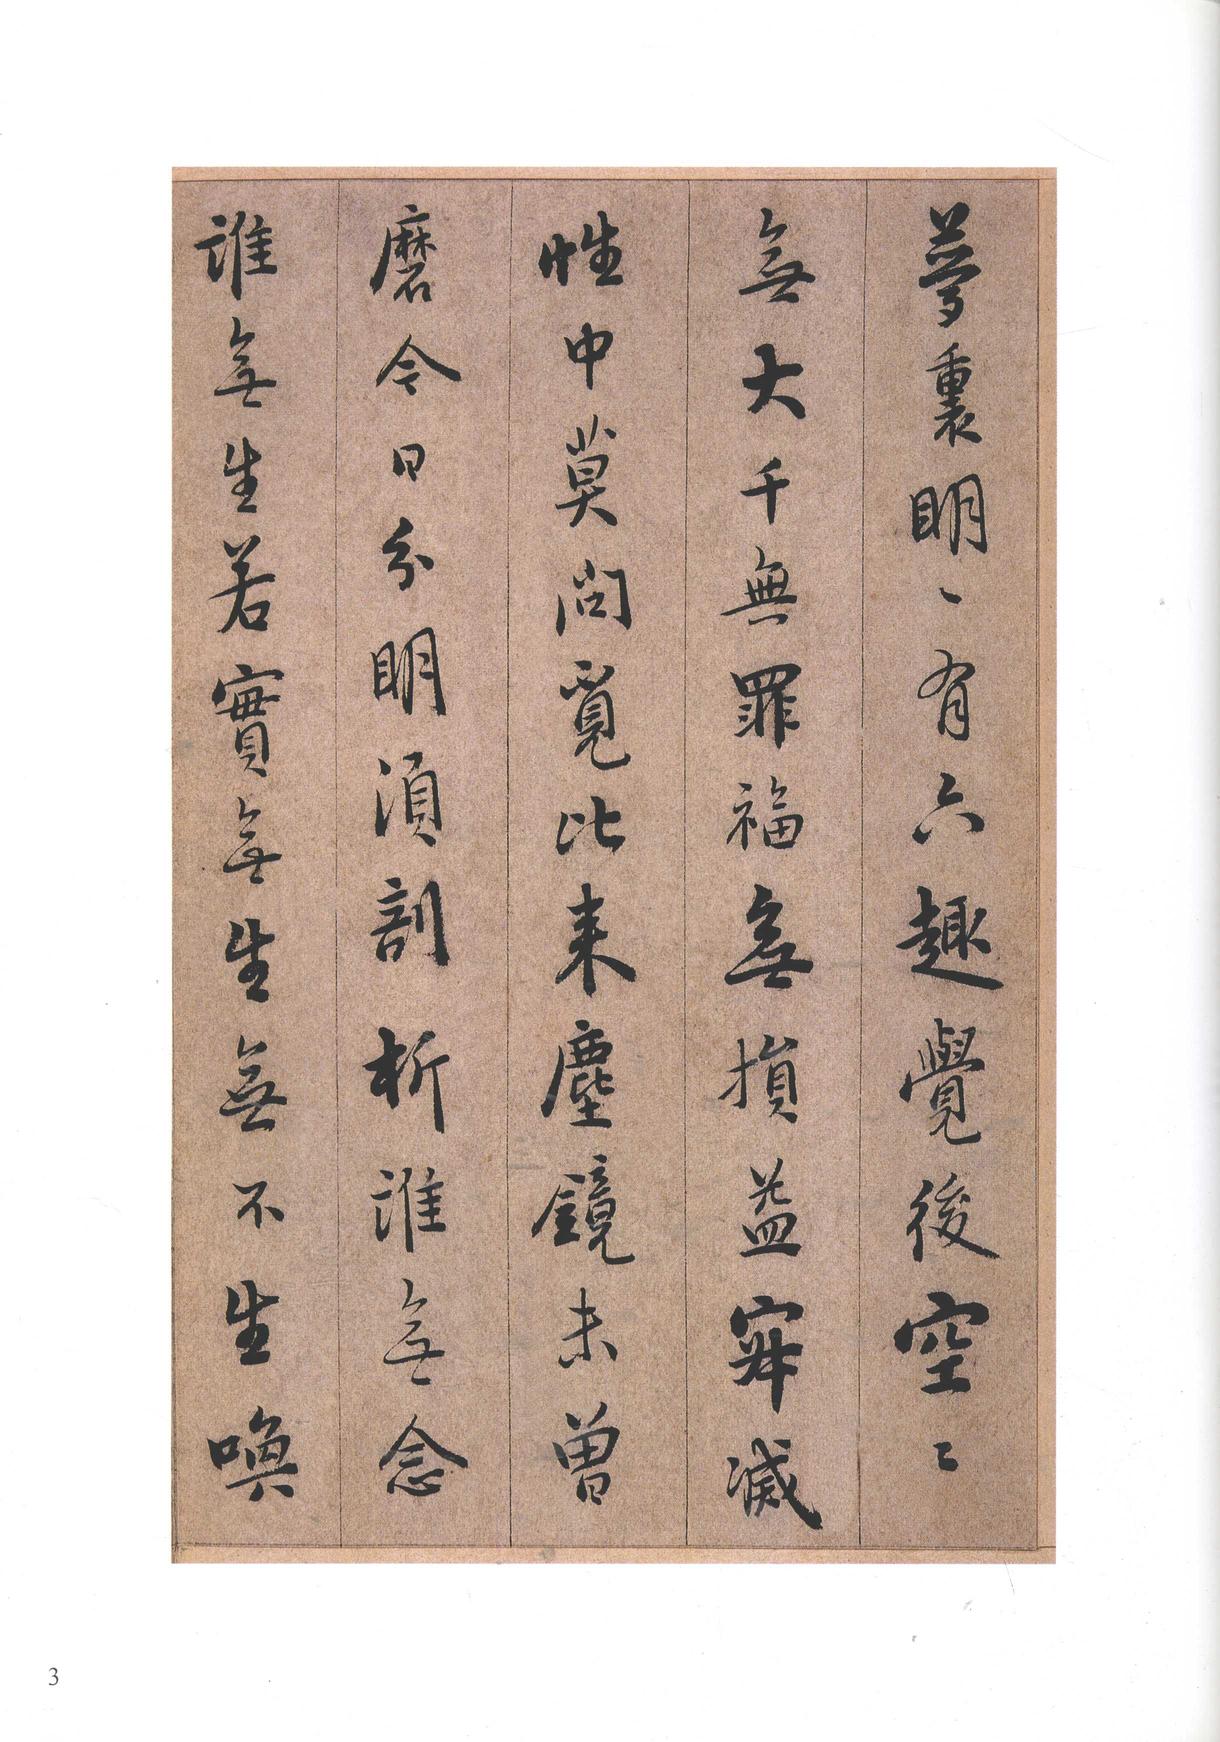 夢裏明〻有六趣覺後空〻
無大千無罪福無損益寂滅
性中莫問覓比来塵鏡未曾
磨今日分明須剖析誰無念
誰無生若實無生無不生喚
3